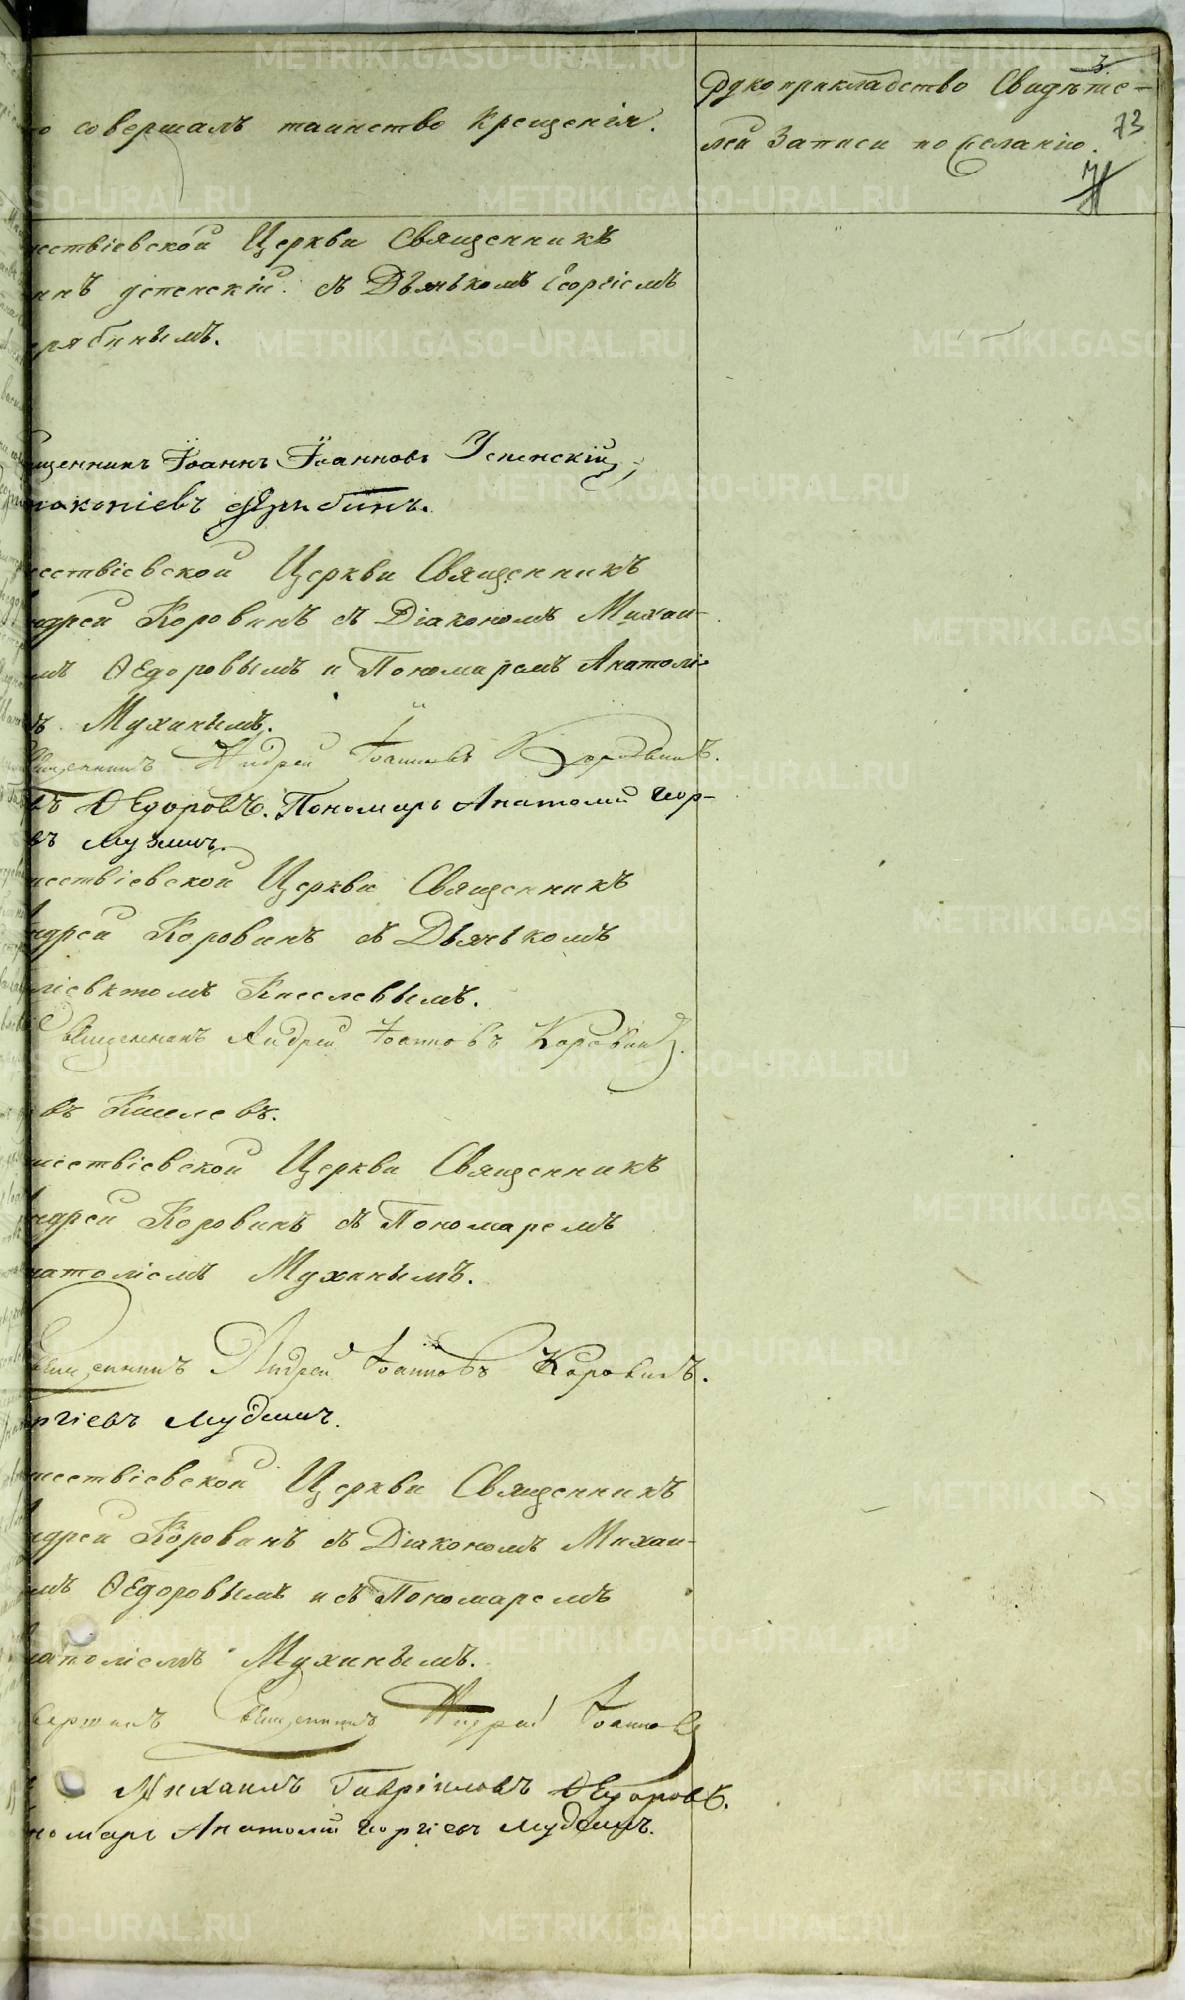 3.
Рукоприкладство Свидѣте-
о совершалъ таинство крещенія.
73
лей записи по желанію.
ествіевской Церкви Священникъ
ннъ Успенскій съ Дьячкомъ Георгіемъ
рябинымъ.
щенникъ Іоаннъ Іоанновъ Успенскій,
рокопіевъ
ествіевской Церкви Священникъ
ндрей Коровинъ съ Діакономъ Михаи-
мъ Ѳедоровымъ и Пономаремъ Анатолі-
ъ Мухинымъ.
Священникъ Андрей Іоанновъ Коровинъ.
въ Ѳедоровъ. Пономарь Анатолий Геор-
въ Мухинъ.
шествіевской Церкви Священникъ
ндрей Коровинъ съ Дьячкомъ
Киселевымъ.
Священникъ Андрей Іоанновъ Коровинъ.
въ Киселевъ.
шествіевской Церкви Священникъ
ндрей Коровинъ съ Пономаремъ
натоліемъ Мухинымъ.
Священникъ Андрей Іоанновъ Коровинъ.
ргіевъ Мухинъ.
шествіевской Церкви Священникъ
ндрей Коровинъ съ Діакономъ Михаи-
мъ Ѳедоровымъ и съ Пономаремъ
натоліемъ Мухинымъ.
вершилъ Священникъ Андрей Іоанновъ
Михаилъ Гавріиловъ Ѳедоровъ.
номарь Анатолий Георгіевъ Мухинъ.
METRIKI.GASO-URAL.RU